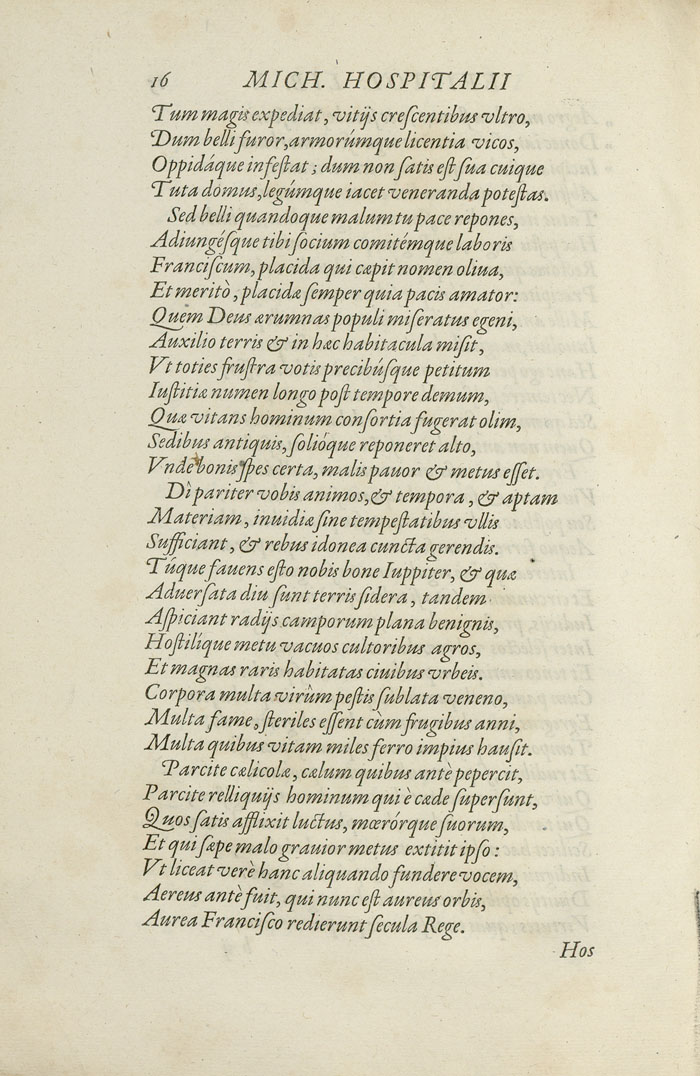 16 MICH. HOSPITALII
Tum magis expediat, vitijs creſcentibus vltro,
Dum belli furor, armorúmque licentia vicos,
Oppidáque infeſtat; dum non ſatis eſt ſua cuique
Tuta domus, legúmque iacet veneranda poteſtas.
Sed belli quandoque malum tu pace repones,
Adiungéſque tibi ſocium comitémque laboris
Franciſcum, placida qui cæpit nomen oliua,
Et meritò, placidæ ſemper quia pacis amator:
Quem Deus ærumnas populi miſeratus egeni,
Auxilio terris & in hæc habitacula miſit,
Vt toties fruſtra votis precibúſque petitum
Iuſtitiæ numen longo poſt tempore demum,
Quæ vitans hominum conſortia fugerat olim,
Sedibus antiquis, ſolióque reponeret alto,
Vnde bonis ſpes certa, malis pauor & metus eſſet.
Dì pariter vobis animos, & tempora, & aptam
Materiam, inuidiæ ſine tempeſtatibus vllis
Sufficiant, & rebus idonea cuncta gerendis.
Túque fauens eſto nobis bone Iuppiter, & quæ
Aduerſata diu ſunt terris ſidera, tandem
Aſpiciant radijs camporum plana benignis,
Hoſtilíque metu vacuos cultoribus agros,
Et magnas raris habitatas ciuibus vrbeis.
Corpora multa virûm peſtis ſublata veneno,
Multa fame, ſteriles eſſent cùm frugibus anni,
Multa quibus vitam miles ferro impius hauſit.
Parcite cælicolæ, cælum quibus antè pepercit,
Parcite relliquijs hominum qui è cæde ſuperſunt,
Quos ſatis afflixit luctus, mœrórque ſuorum,
Et qui ſæpe malo grauior metus extitit ipſo:
Vt liceat verè hanc aliquando fundere vocem,
Aereus antè fuit, qui nunc eſt aureus orbis,
Aurea Franciſco redierunt ſecula Rege.
Hos